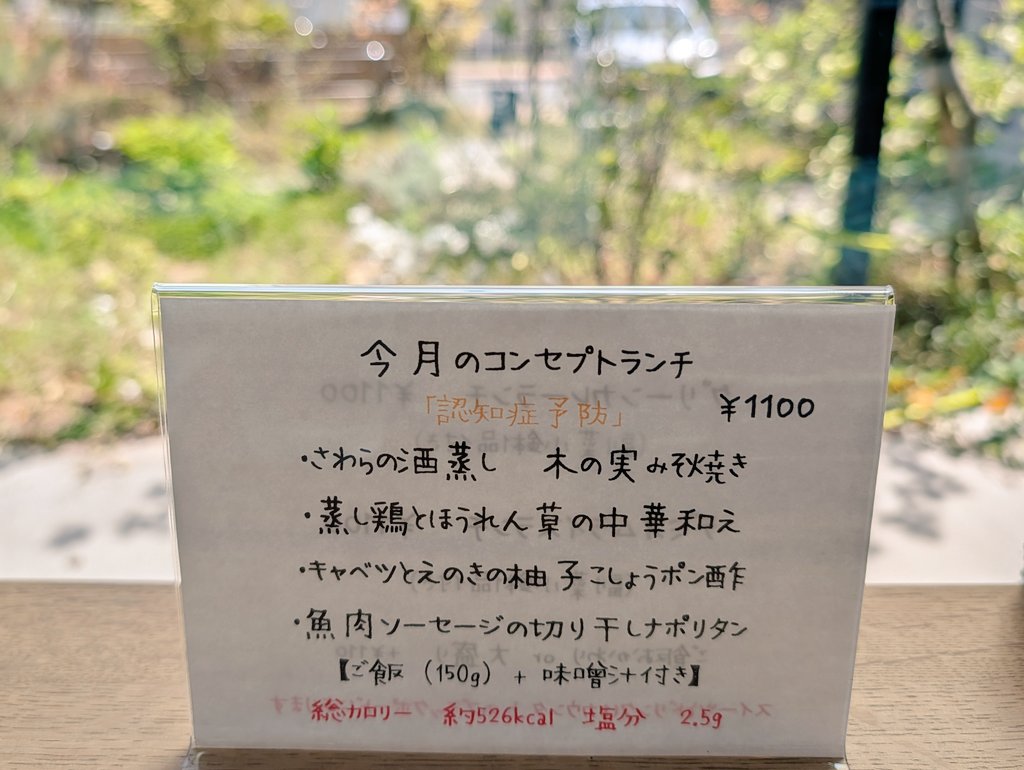 今月のコンセプトランチ
「認知症予防」 ¥1100
・さわらの酒蒸し 木の実みそ焼き
・蒸し鶏とほうれん草の中華和え
・キャベツとえのきの柚子こしょうポン酢
・魚肉ソーセージの切り干しナポリタン
【ご飯（150g）+ 味噌汁付き】
総カロリー 約526kcal 塩分 2.5g